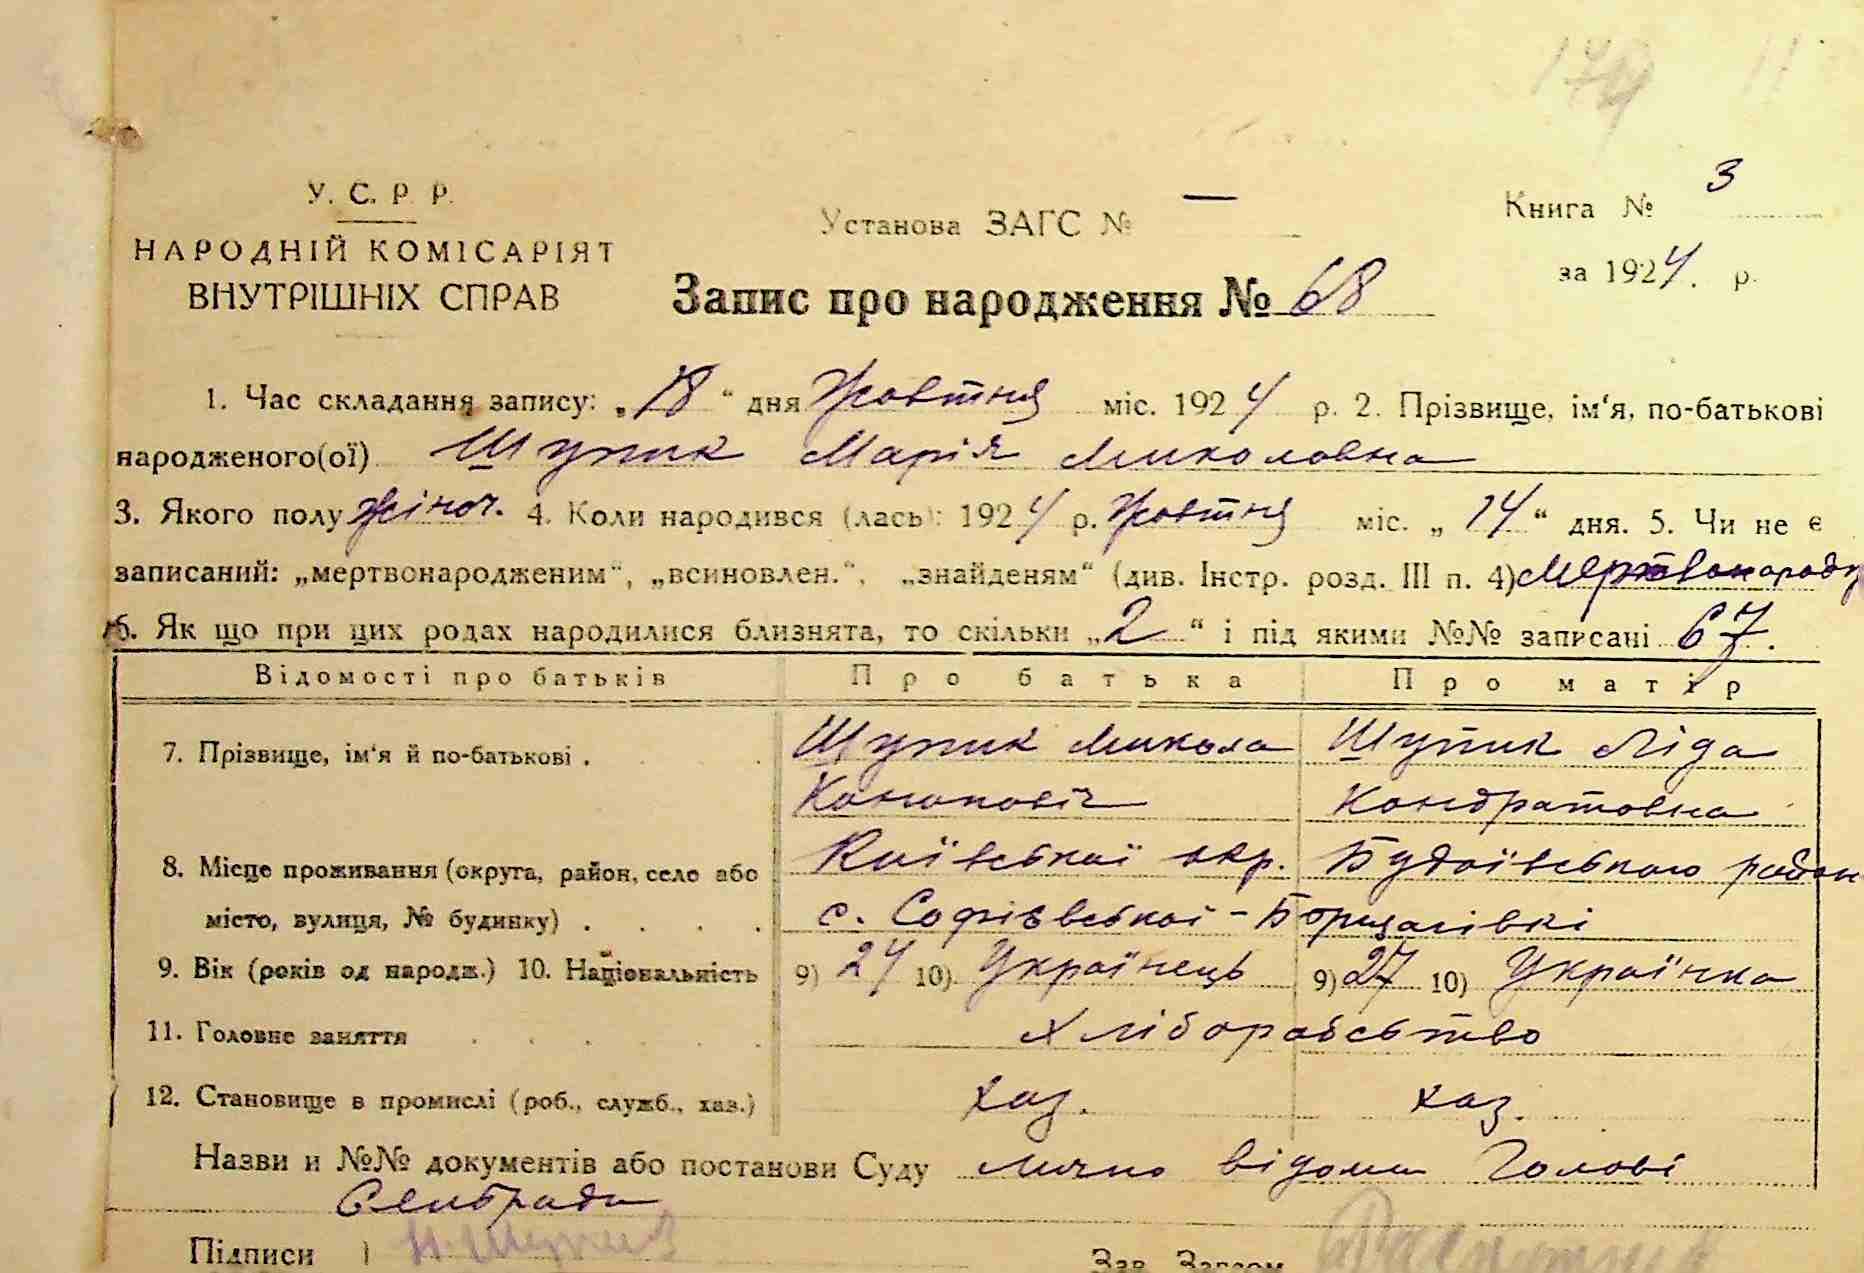 179 11
У. С. Р. Р.
НАРОДНІЙ КОМІСАРІЯТ
ВНУТРІШНІХ СПРАВ
Установа ЗАГС № —
Книга № 3
за 1924. р.
Запис про народження № 68
1. Час складання запису: „18“ дня Жовтня міс. 1924 р. 2. Прізвище, ім‘я, по-батькові
народженого(ої) Шупик Марія Миколовна
3. Якого полу жіноч. 4. Коли народився (лась): 1924 р. Жовтня міс. „14“ дня. 5. Чи не є
записаний: „мертвонародженим“, „всиновлен.“, „знайденям“ (див. Інстр. розд. III п. 4) мертвонародж
6. Як що при цих родах народилися близнята, то скільки „2“ і під якими №№ записані 67.
Відомості про батьків Про батька Про матір
7. Прізвище, ім‘я й по-батькові . Шупик Микола Шупик Ліда
Кононовіч Кондратовна
8. Місце проживання (округа, район, село або Київської окр. Будаївського район
місто, вулиця, № будинку) . . . . с. Софіївської-Борщагівкі
9. Вік (років од народж.) 10. Національність 9) 24 10) Українець 9) 27 10) Українка
11. Головне заняття . . . . . . хліборобство
12. Становище в промислі (роб., служб., хаз.) хаз. хаз.
Назви и №№ документів або постанови Суду лично відоми Голові
Сельради
Підписи Н. Шупик Зав. Загсом